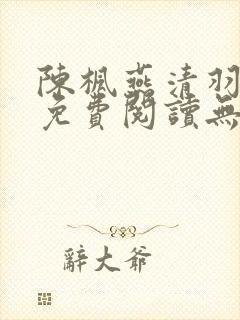 陳楓燕清羽
免費閱讀無
辭大爺